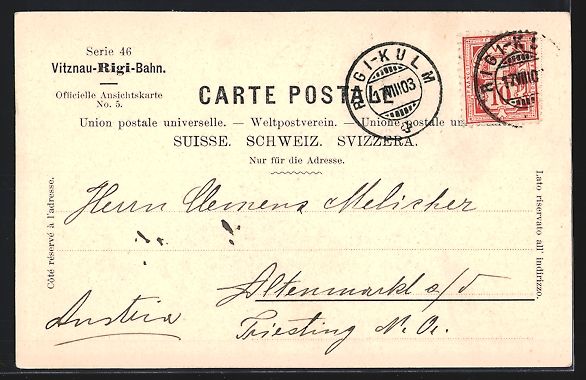 Serie 46
Vitznau-Rigi-Bahn.
Officielle Ansichtskarte
No. 5.
RIGI-KULM
17.VIII.03
RIGI-KU
17.VIII.0
10
CARTE POSTALE
Union postale universelle. — Weltpostverein. — Unione postale un
SUISSE. SCHWEIZ. SVIZZERA.
Nur für die Adresse.
Côté réservé à l'adresse.
Lato riservato all' indirizzo.
Herrn Clemens Melicher
Altenmarkt a/d
Austria
Triesting N. Oe.